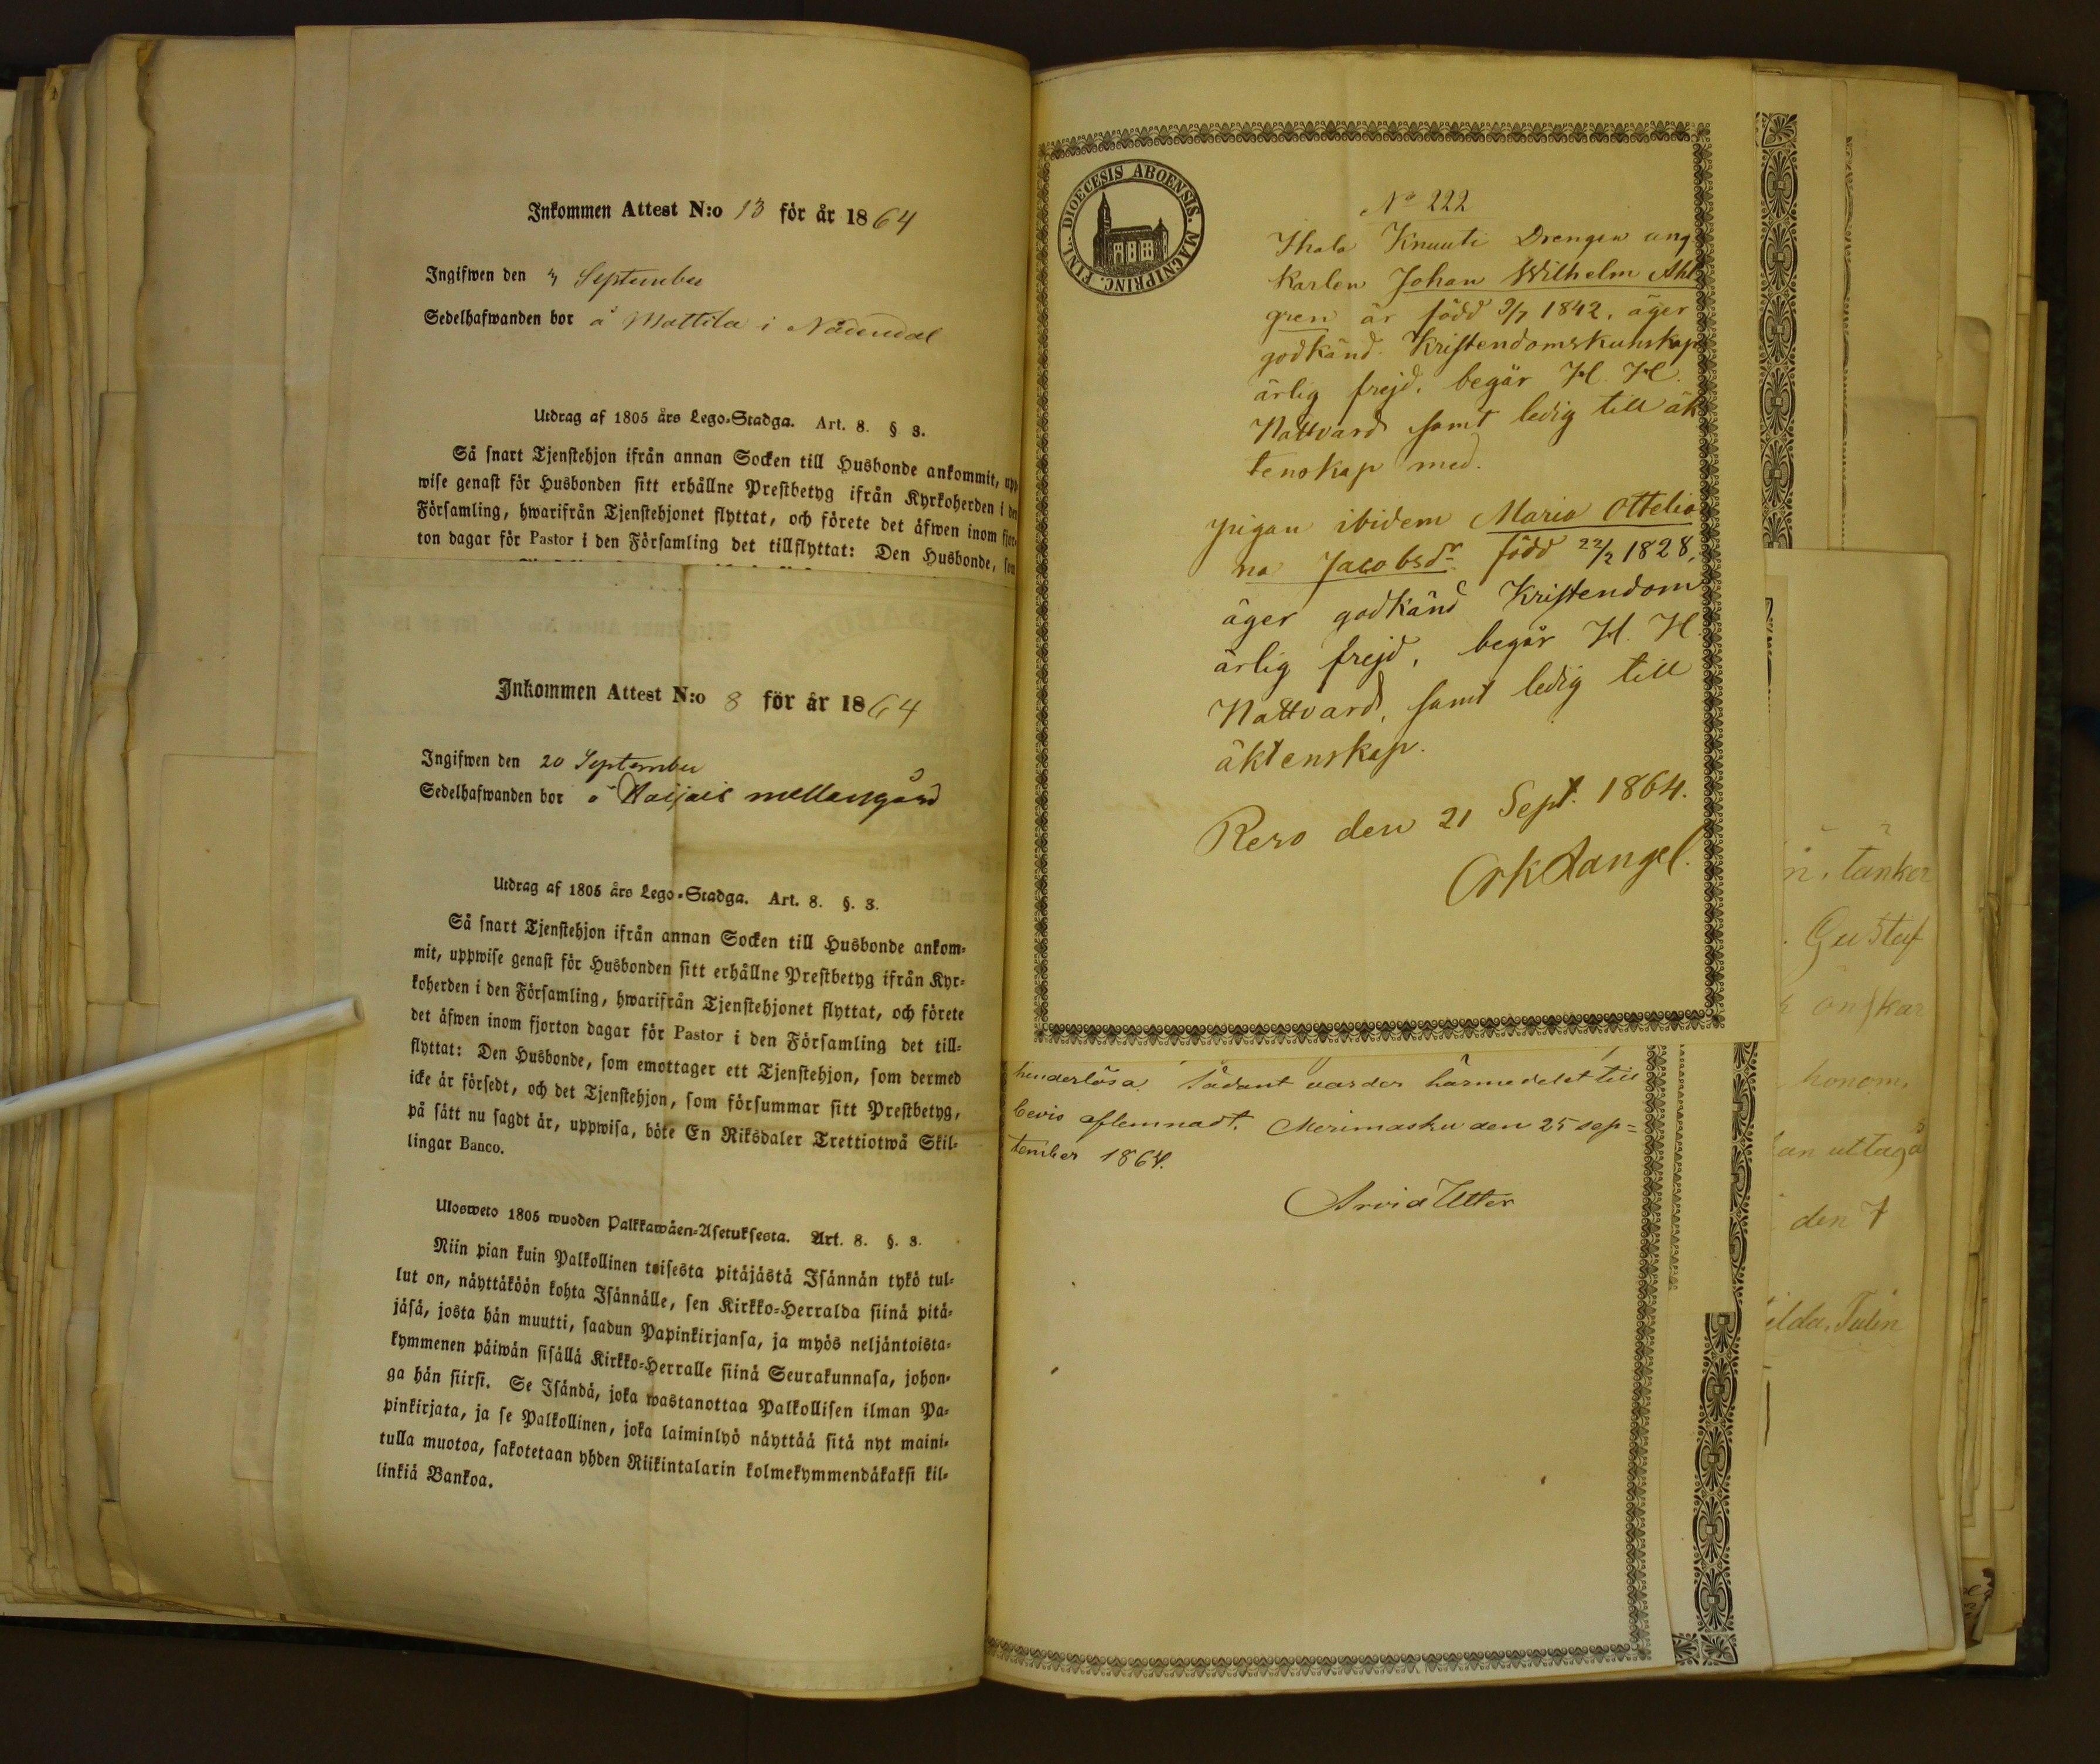 Inkommen Attest N:o 13 för år 1864
Ingifwen den September
Sedelhafwanden bor å Mattila i Nådendal
Utdrag af 1805 års Lego-Stadga. Art. 8. § 3.
Så snart Tjenstehjon ifrån annan Socken till Husbonde ankommit, upp-
wise genast för Husbonden sitt erhållne Prestbetyg ifrån Kyrkoherden i den
Församling, hwarifrån Tjenstehjonet flyttat, och förete det äfwen inom fjor-
ton dagar för Pastor i den Församling det tillflyttat: Den Husbonde, som
Inkommen Attest N:o 8 för år 1864
Ingifwen den 20 September
Sedelhafwanden bor å Haijais mellangård
Utdrag af 1805 års Lego-Stadga. Art. 8. §. 3.
Så snart Tjenstehjon ifrån annan Socken till Husbonde ankom-
mit, uppwise genast för Husbonden sitt erhållne Prestbetyg ifrån Kyr-
koherden i den Församling, hwarifrån Tjenstehjonet flyttat, och förete
det äfwen inom fjorton dagar för Pastor i den Församling det till-
flyttat: Den Husbonde, som emottager ett Tjenstehjon, som dermed
icke är försedt, och det Tjenstehjon, som försummar sitt Prestbetyg,
på sätt nu sagdt är, uppwisa, böte En Riksdaler Trettiotwå Skil-
lingar Banco.
Ulosweto 1805 wuoden Palkkawäen-Asetuksesta. Art. 8. §. 3.
Niin pian kuin Palkollinen toisesta pitäjästä Isännän tykö tul-
lut on, näyttäköön kohta Isännälle, sen Kirkko-Herralda siinä pitä-
jäsä, josta hän muutti, saadun Papinkirjansa, ja myös neljäntoista-
kymmenen päiwän sisällä Kirkko-Herralle siinä Seurakunnasa, johon-
ga hän siirsi. Se Isändä, joka wastanottaa Palkollisen ilman Pa-
pinkirjata, ja se Palkollinen, joka laiminlyö näyttää sitä nyt maini-
tulla muotoa, sakotetaan yhden Riikintalarin kolmekymmendäkaksi kil-
linkiä Bankoa.
FINL. DIOECESIS ABOENSIS. MAGNIPRINC.
No 222
Ihala Knuuti Drengen ung-
karlen Johan Wilhelm Ahl
gren är född 9/7 1842, äger
godkänd Kristendomskunskap
ärlig frejd, begår H. H.
Nattvard samt ledig till äk
tenskap med.
pigan ibidem Maria Ottelia
na Jacobsdr född 22/2 1828,
äger godkänd Kristendom
ärlig frejd, begår H. H.
Nattvard, samt ledig till
äktenskap.
Reso den 21 Sept. 1864.
hinderlösa. Sådant varder härmedelst till
bevis aflemnadt. Merimasku den 25 sep=
tember 1864.
Arvid Utter
tänker
Gustaf
önskar
honom,
uttaga
den 7
ilda, Tulin